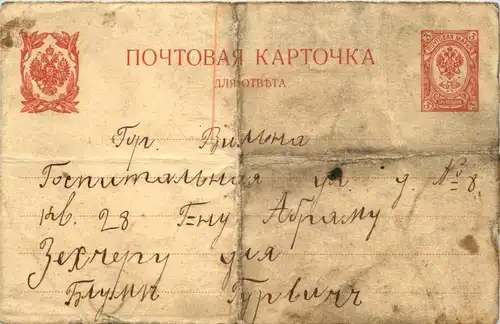 ПОЧТОВАЯ КАРТОЧКА
ДЛЯ ОТВѢТА
ПОЧТОВАЯ МАРКА
Гор. Вильна
Госпитальная ул. д. № 8,
кв. 28 Г=ну Абраму
Зехчеру для
Блумы Гурвичъ